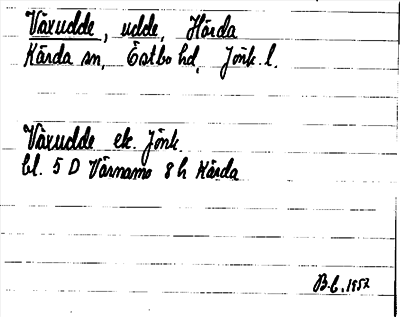 Våxudde, udde, Hårda
Kärda sn, Östbo hd, Jönk. l.
Våxudde ek. Jönk.
bl. 5 D Värnamo 8 h Kärda
B.E. 1957